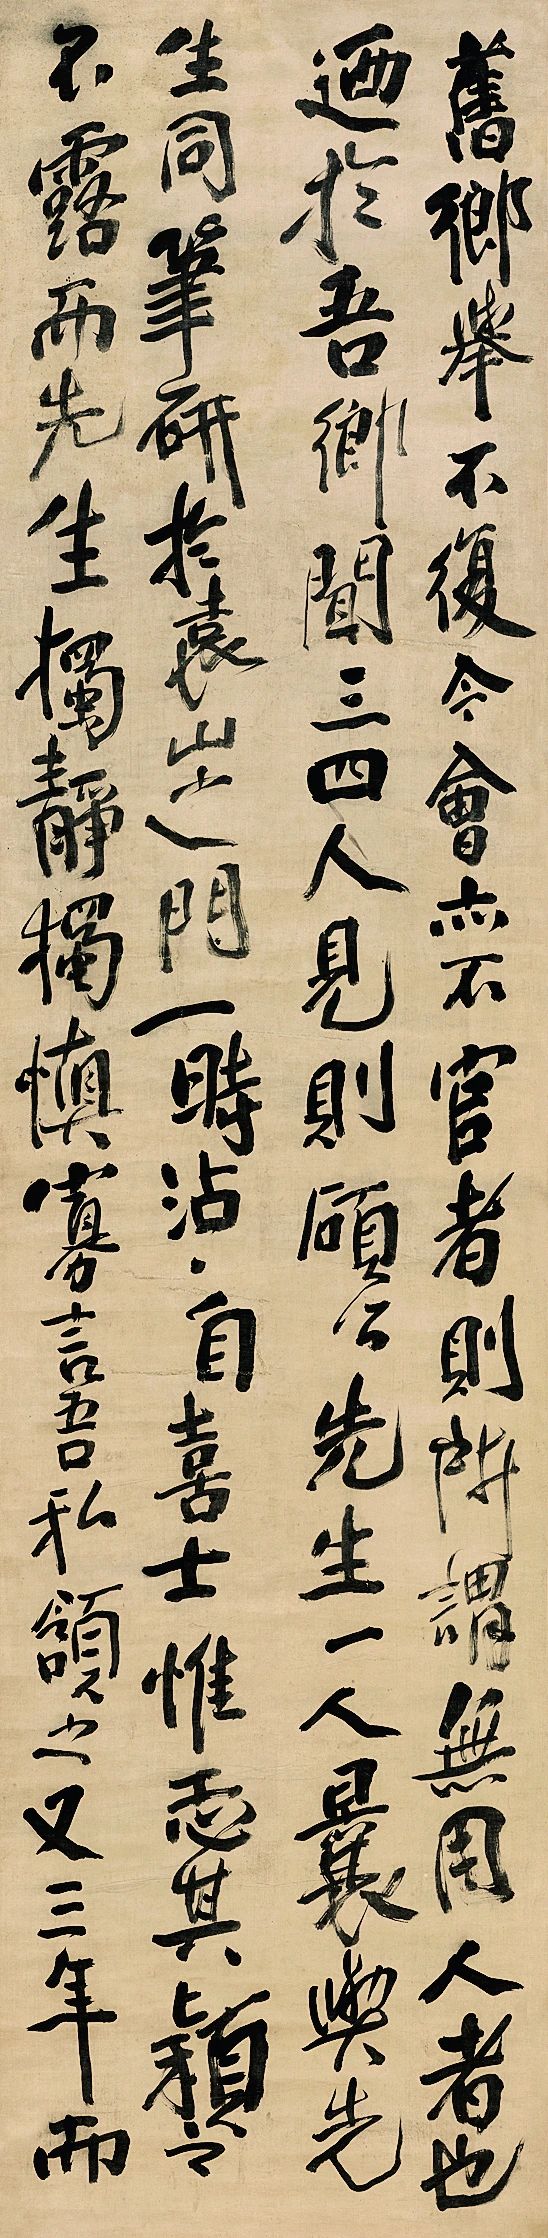 舊鄉舉不復令會亦不官者則所謂無用人者也
迺於吾鄉聞三四人見則碩公先生一人曩與先
生同筆研於袁山之門一時沾沾自喜士惟恐其穎之
不露而先生獨靜獨慎寡言吾私頷之又三年而